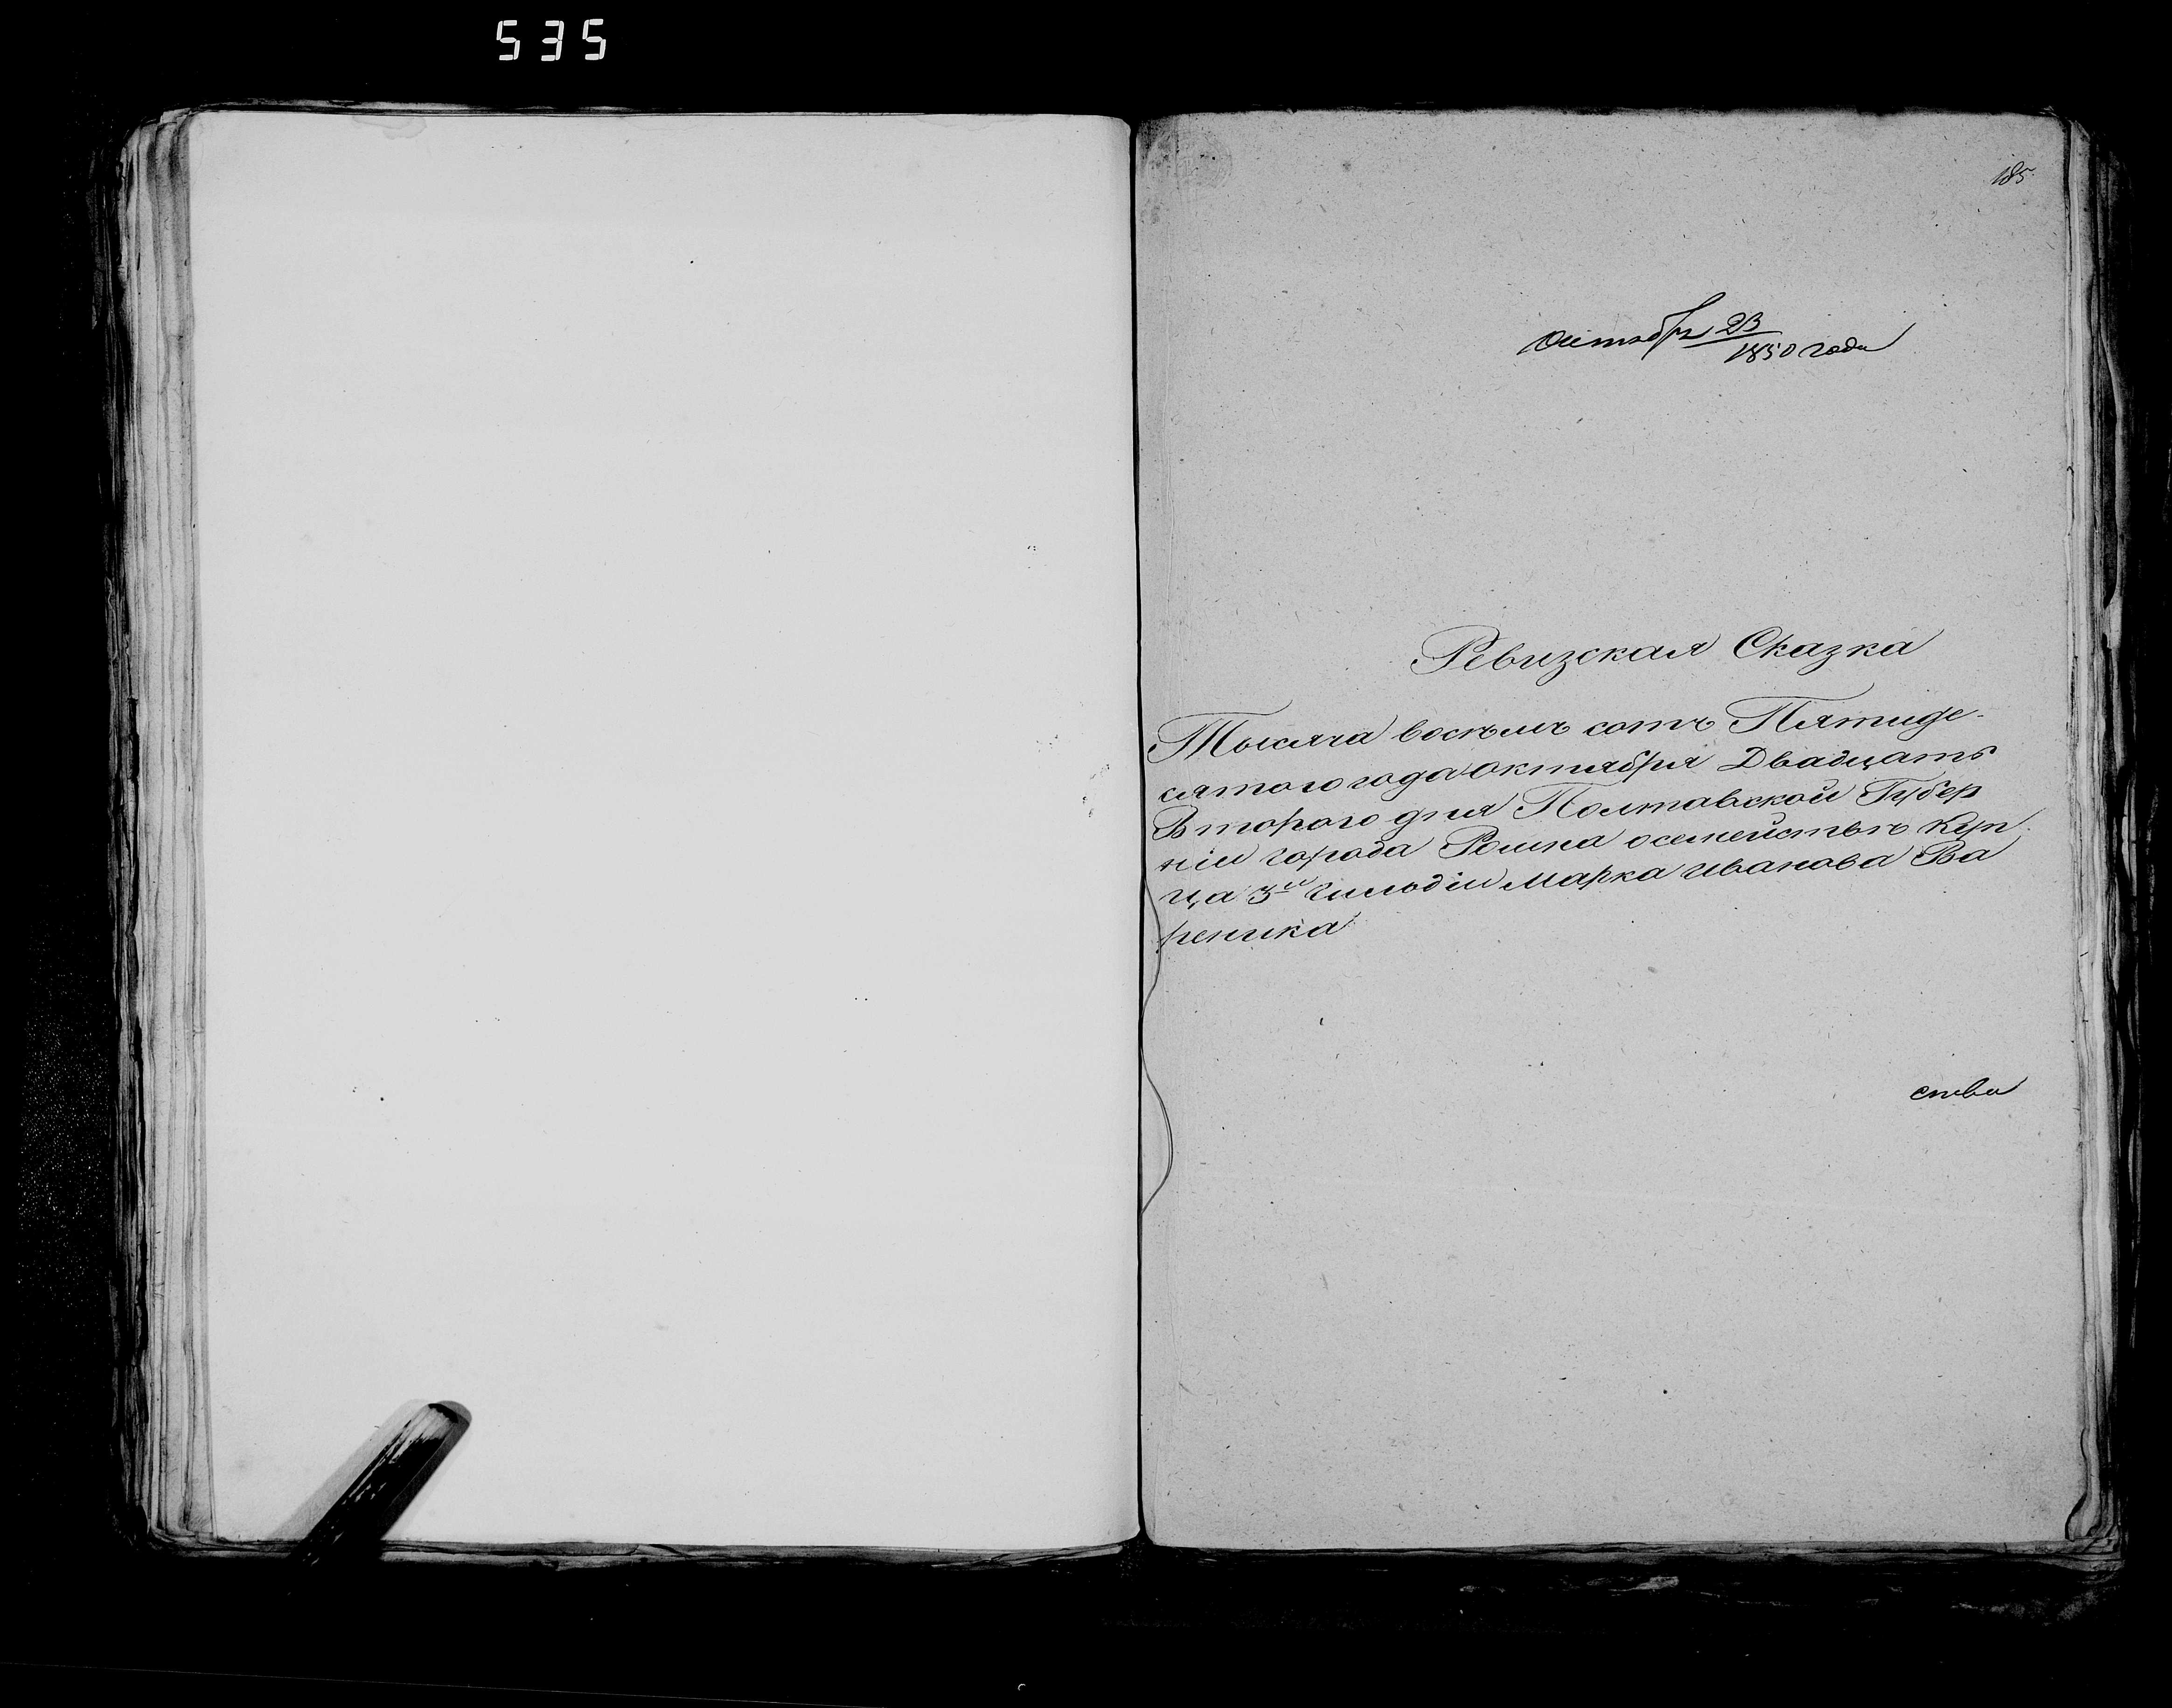 535
185
Октября 23
1850 года
Ревизская Сказка
Тысяча восѣмъ сотъ Пятиде-
сятого года октября Двадцать
Второго дня Полтавской Губер
ніи города Ромна осемействѣ куп
ца 3й Гильдіи Марка иванова Ва
реника